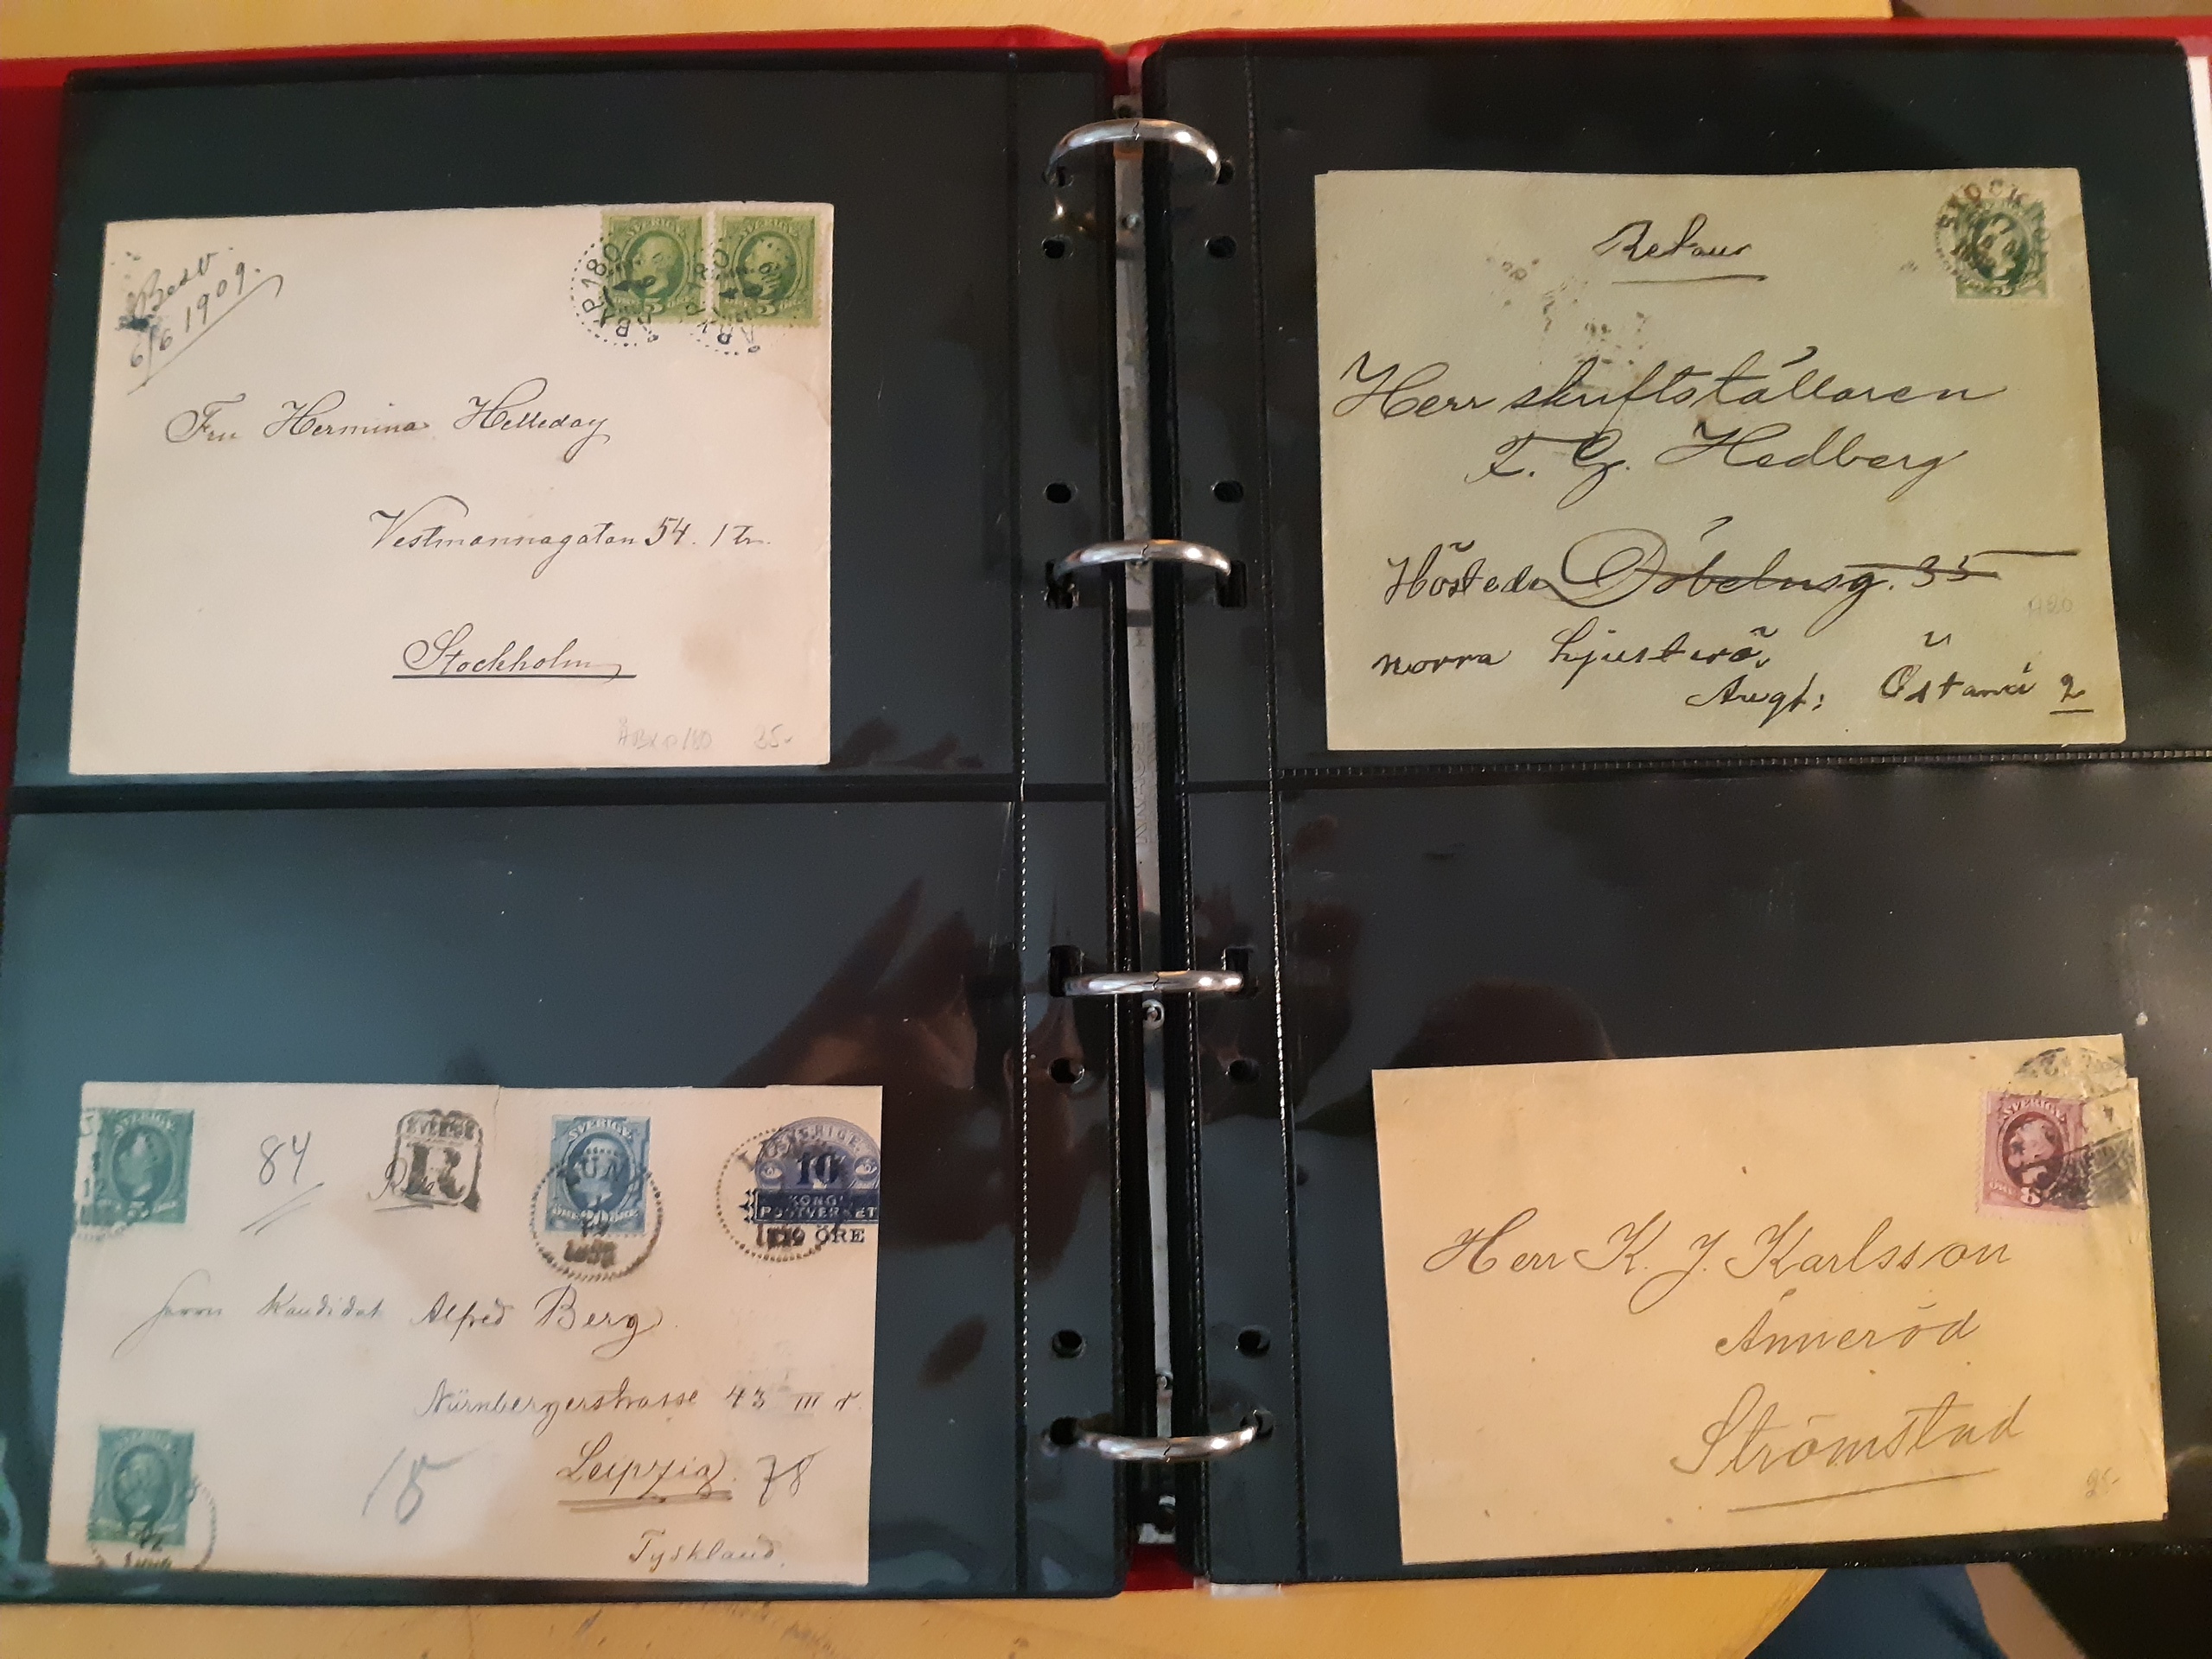 Besv.
6/6 1909.
SVERIGE
SVERIGE
5 ÖRE
5 ÖRE
PBXP 180
PBXP 180
Fru Hermina Helleday
Vestmannagatan 54. 1 tr.
Stockholm
35-
Retour
Herr skriftställaren
F. G. Hedberg
Döbelnsg. 35
norra Ljusterö,
Augf: Östanå 2
SVERIGE
84
SVERIGE
R
SVERIGE
20
LUND
SVERIGE
10
KONGL
POSTVERKET
ÖRE
Herrn Kandidat Alfred Berg
Nürnbergerstrasse 43 III r.
Leipzig. 78
15
Tyskland.
SVERIGE
8
Herr K. J. Karlsson
Änneröd
Strömstad
25-